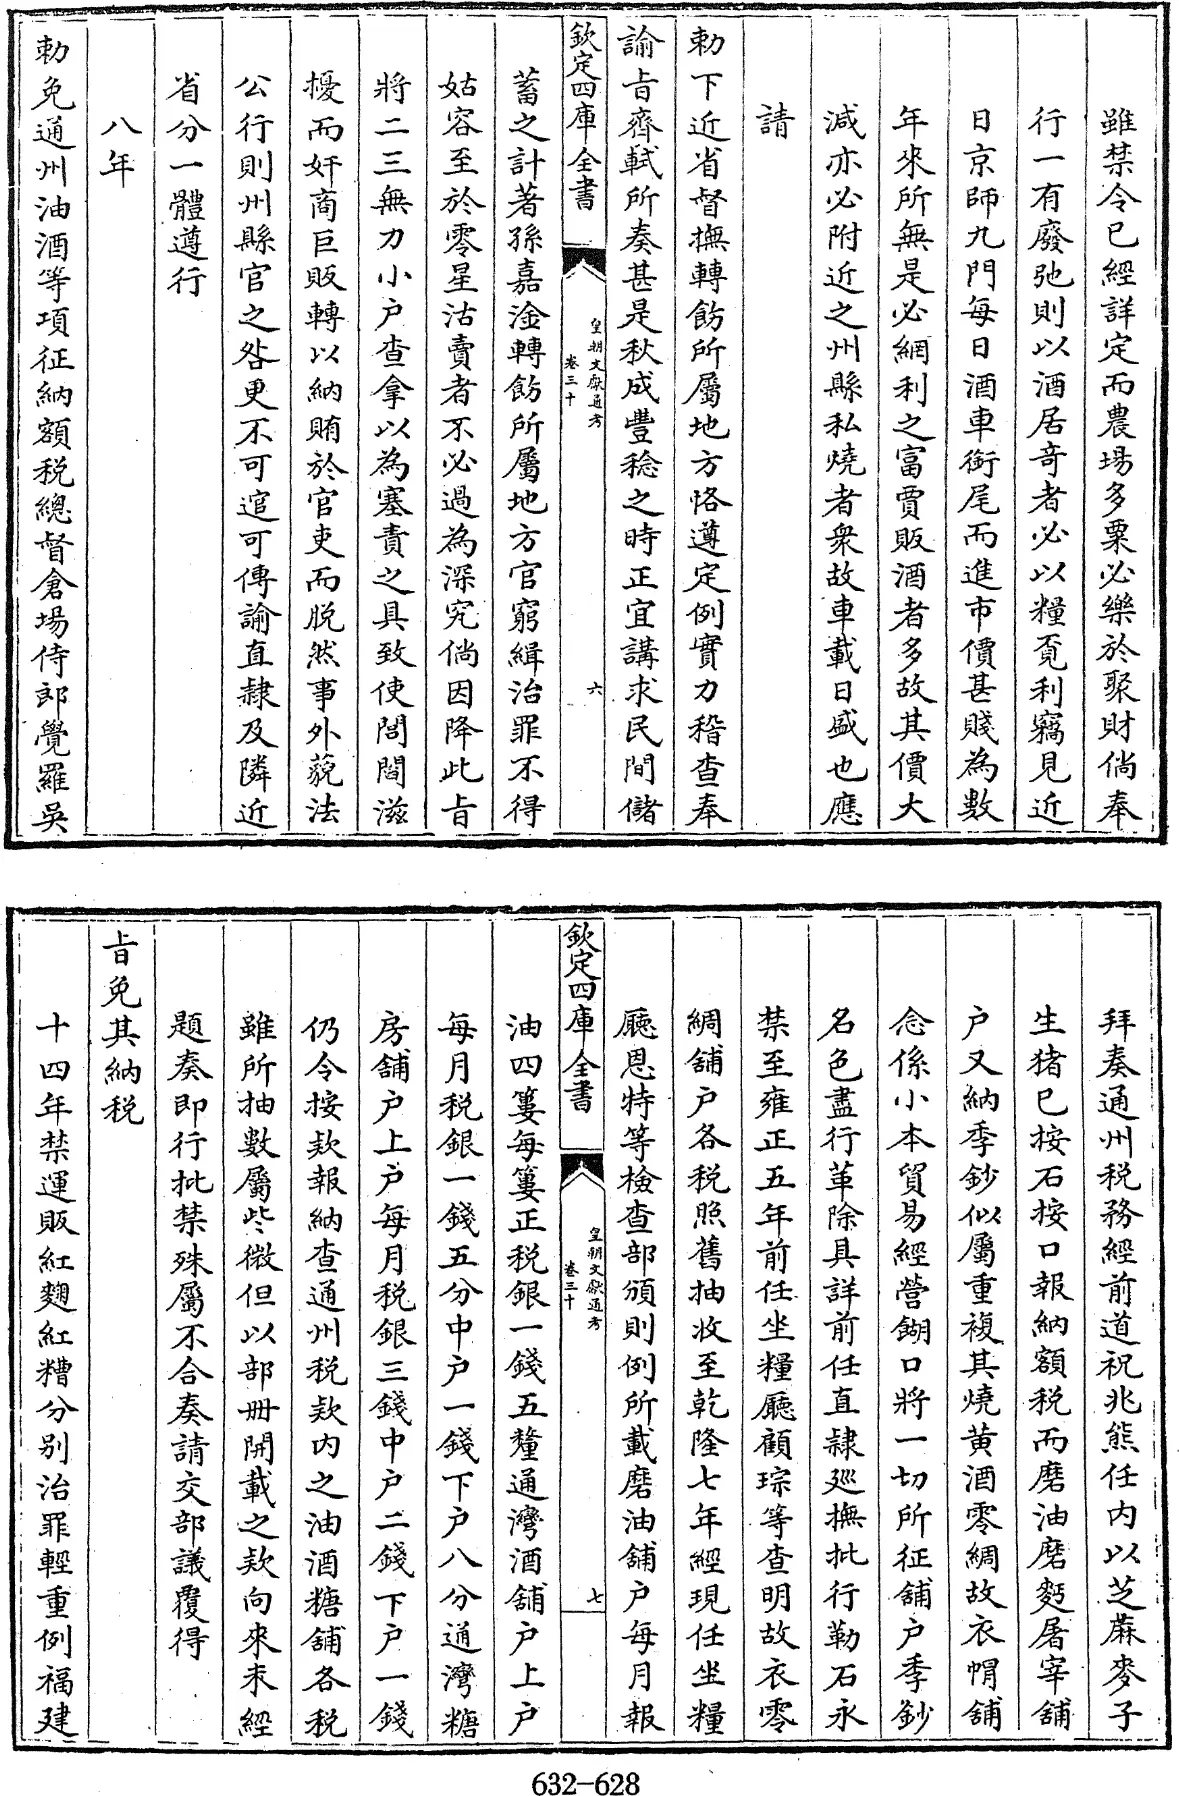 雖禁令已經詳定而農場多粟必樂於聚財倘奉
行一有廢弛則以酒居奇者必以糧覔利竊見近
日京師九門每日酒車銜尾而進市價甚賤為數
年來所無是必網利之富賈販酒者多故其價大
減亦必附近之州縣私燒者衆故車載日盛也應
請
勅下近省督撫轉飭所屬地方恪遵定例實力稽查奉
諭㫖齊軾所奏甚是秋成豐稔之時正宜講求民間儲
欽定四庫全書
皇朝文獻通考
卷三十
六
蓄之計著孫嘉淦轉飭所屬地方官窮緝治罪不得
姑容至於零星沽賣者不必過為深究倘因降此㫖
將二三無力小户查拿以為塞責之具致使閭閻滋
擾而奸商巨販轉以納賄於官吏而脱然事外藐法
公行則州縣官之咎更不可逭可傳諭直隷及隣近
省分一體遵行
八年
勅免通州油酒等項征納額税總督倉場侍郎覺羅吳
拜奏通州税務經前道祝兆熊任内以芝蔴麥子
生猪已按石按口報納額税而磨油磨麪屠宰舖
户又納季鈔似屬重複其燒黄酒零綢故衣帽舖
念係小本貿易經營餬口將一切所征舖户季鈔
名色盡行革除具詳前任直隷廵撫批行勒石永
禁至雍正五年前任坐糧廳顧琮等查明故衣零
綢舖户各税照舊抽收至乾隆七年經現任坐糧
廳恩特等檢查部頒則例所載磨油舖户每月報
欽定四庫全書
皇朝文獻通考
卷三十
七
油四簍每簍正税銀一錢五釐通灣酒舖户上户
每月税銀一錢五分中户一錢下户八分通灣糖
房舖户上户每月税銀三錢中户二錢下户一錢
仍令按欵報納查通州税欵内之油酒糖舖各税
雖所抽數屬些微但以部册開載之欵向來未經
題奏即行批禁殊屬不合奏請交部議覆得
㫖免其納税
十四年禁運販紅麴紅糟分别治罪輕重例福建
632-628